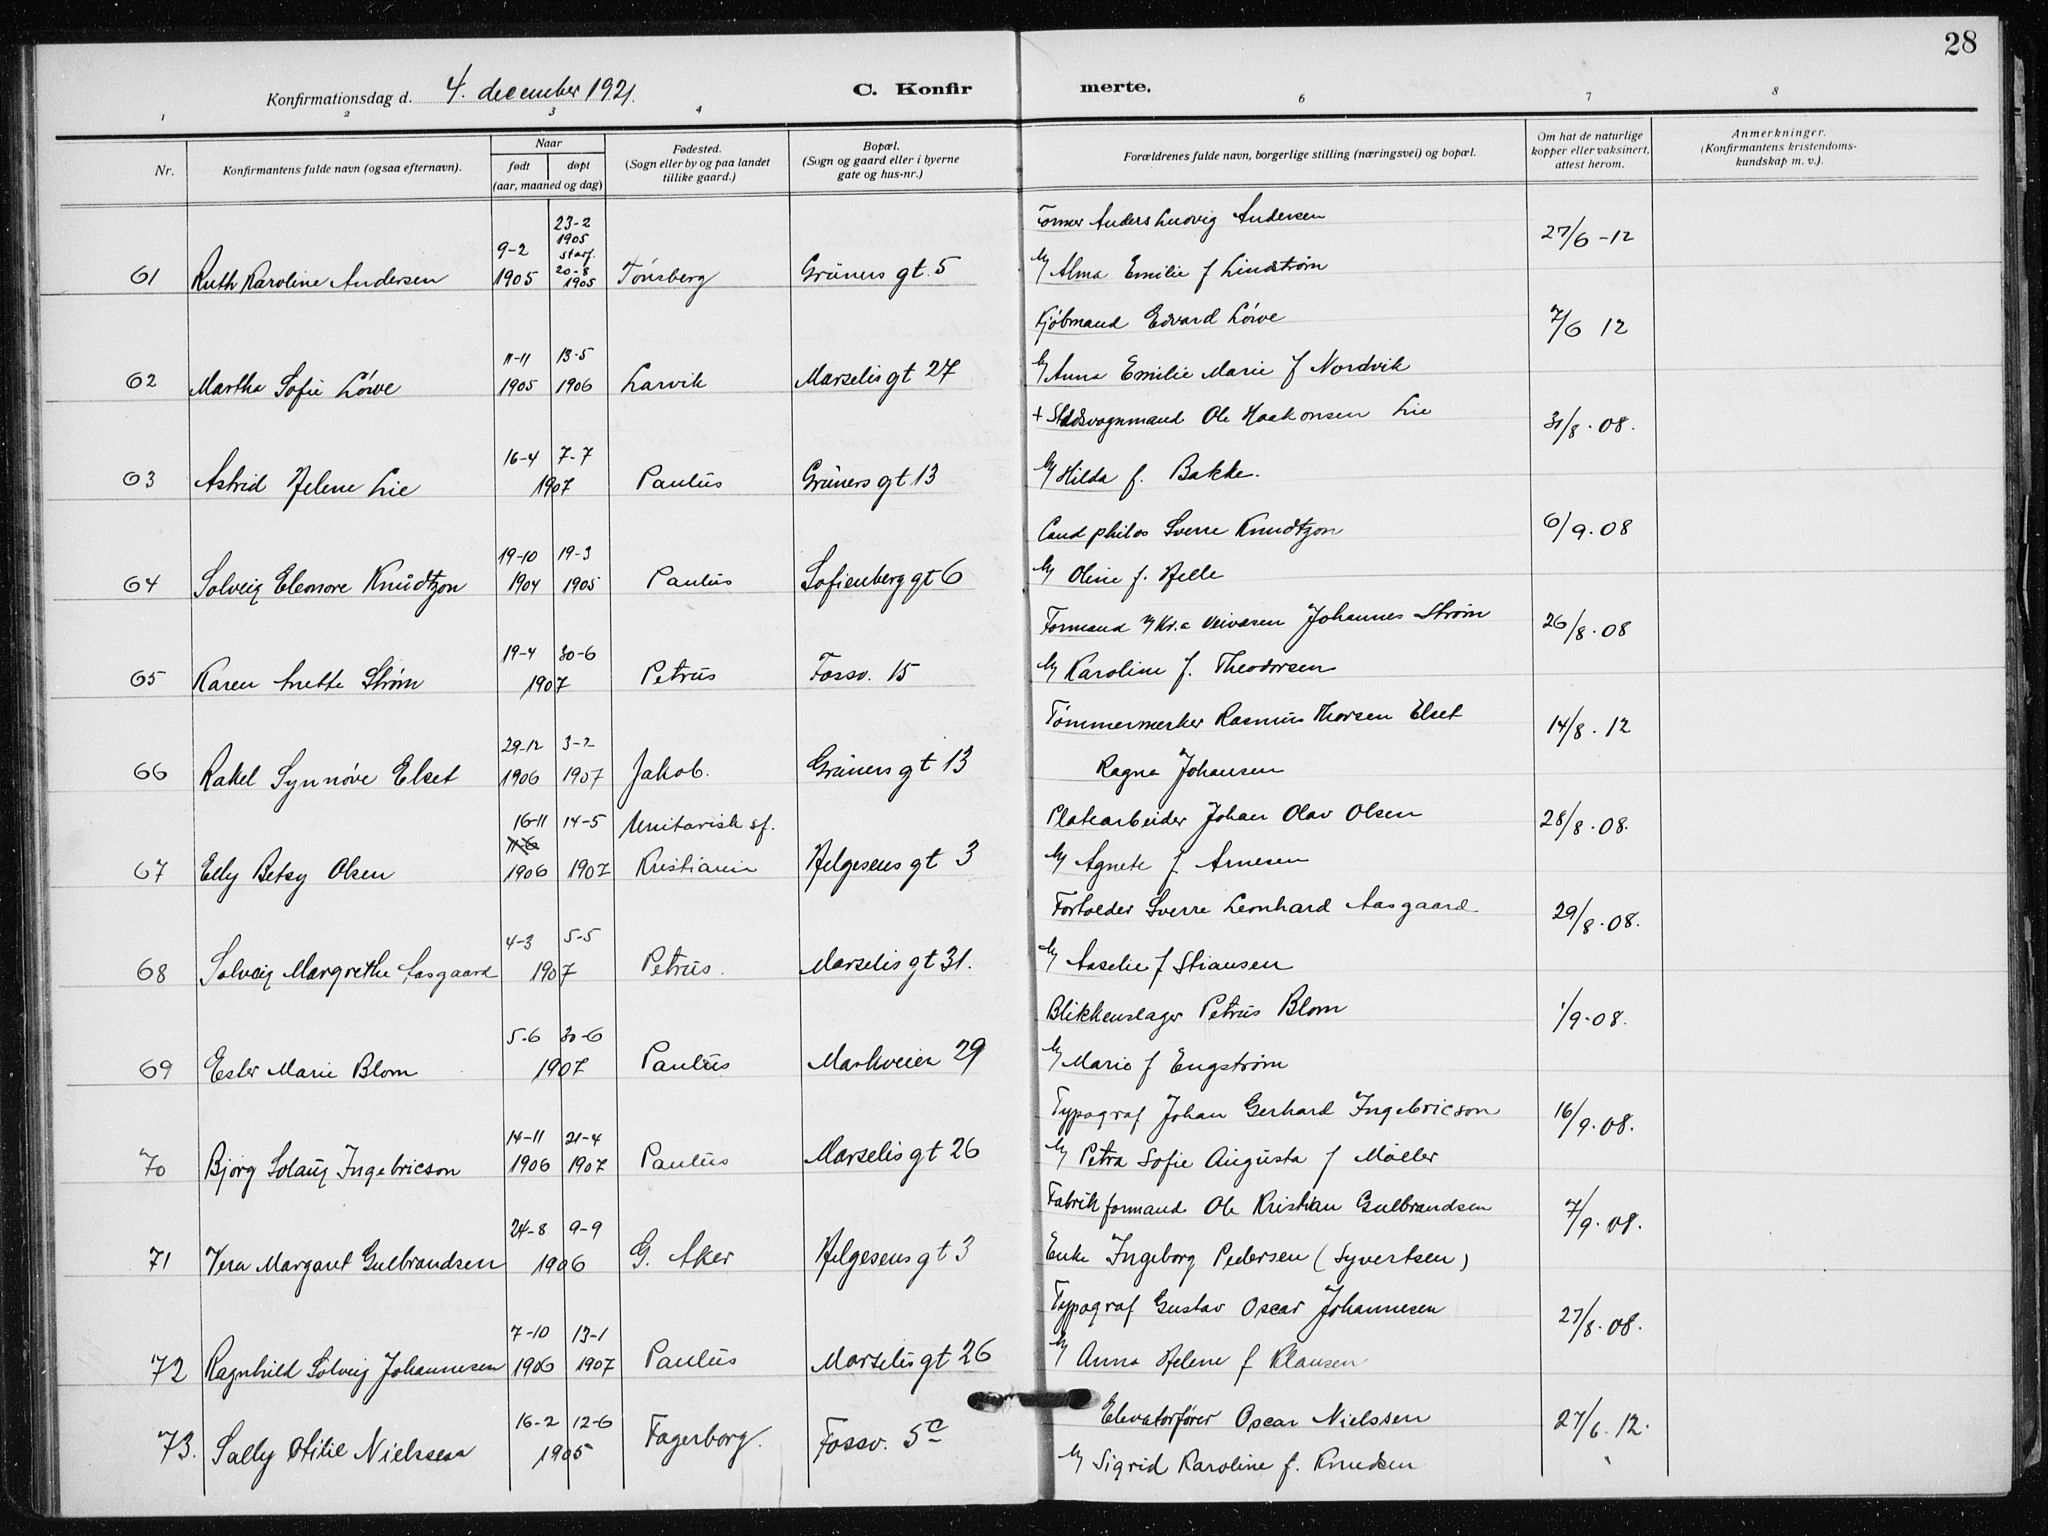 28
Konfirmationsdag d. 4. december 1921. C. Konfirmerte.
1 2 3 4 6 7 8
Nr. Konfirmantens fulde navn (ogsaa efternavn). Naar født døpt (aar, maaned og dag) Fødested. (Sogn eller by og paa landet tillike gaard.) Bopæl. (Sogn og gaard eller i byerne gate og hus-nr.) Forældrenes fulde navn, borgerlige stilling (næringsvei) og bopæl. Om hat de naturlige kopper eller vaksinert, attest herom. Anmerkninger. (Konfirmantens kristendoms-kundskap m. v.).
23-2 1905 stadf. Former Anders Ludvig Andersen 27/6 -12
61 Ruth Karoline Andersen 9-2 1905 20-8 1905 Tönsberg Grüners gt. 5 Alma Emilie f Lindström
Kjöbmand Edvard Löwe 7/6 12
62 Martha Sofie Löwe 11-11 1905 13-5 1906 Larvik Marselis gt 27 Anna Emilie Marie f Nordvik
+ Stadsvognmand Ole Haakonsen Lie 31/8. 08.
63 Astrid Helene Lie 16-4 7-7 1907 Paulüs Grüners gt 13 Hilda f. Bakke.
Cand philos Sverre Knudtzon 6/9. 08
64 Solveig Eleonore Knüdtzon 19-10 1904 19-3 1905 Paulüs Sofienberg gt 6 Oline f. Helle
Formand Veivæsen Johannes Ström 26/8. 08
65 Karen Anette Ström 19-4 30-6 1907 Petrüs Fossv. 15 Karoline f. Theodorsen
Tömmermerker Rasmüs Thorsen Elset 14/8. 12
66 Rakel Synnöve Elset 29-12 1906 3-2 1907 Jakob. Grüners gt 13 Ragna Johansen
Platearbeider Johan Olav Olsen 28/8. 08.
67 Elly Betsy Olsen 16-11 1906 14-5 1907 Unitarisk sf. Kristiania Helgesens gt 3 Agnete f Arnesen
Forgolder Sverre Leonhard Aasgaard 29/8. 08.
68 Solveig Margrethe Aasgaard 4-3 5-5 1907 Petrüs. Marselis gt 31. Aaselie f Stiansen
Blikkenslager Petrüs Blom 1/9. 08.
69 Ester Marie Blom 5-6 30-6 1907 Paulüs Markveien 29 Marie f Engström
Typograf Johan Gerhard Ingebricson 16/9. 08.
70 Bjorg Solaug Ingebricson 14-11 1906 21-4 1907 Paulüs Marselis gt 26 Petra Sofie Augusta f Möller
Fabrikformand Ole Kristian Gulbrandsen 7/9. 08.
71 Vera Margaret Gulbrandsen 24-8 9-9 1906 G. Aker Helgesens gt 3 Enke Ingeborg Pedersen (Syvertsen)
Typograf Gustav Oscar Johannesen 27/8. 08.
72 Ragnhild Solveig Johannesen 7-10 1906 13-1 1907 Paulüs Marselis gt 26 Anna Helene f Klausen
Elevatorförer Oscar Nielssen 27/6. 12.
73. Sally Otilie Nielssen 16-2 12-6 1905 Fagerborg. Fossv. 5c Sigrid Karoline f. Knudsen